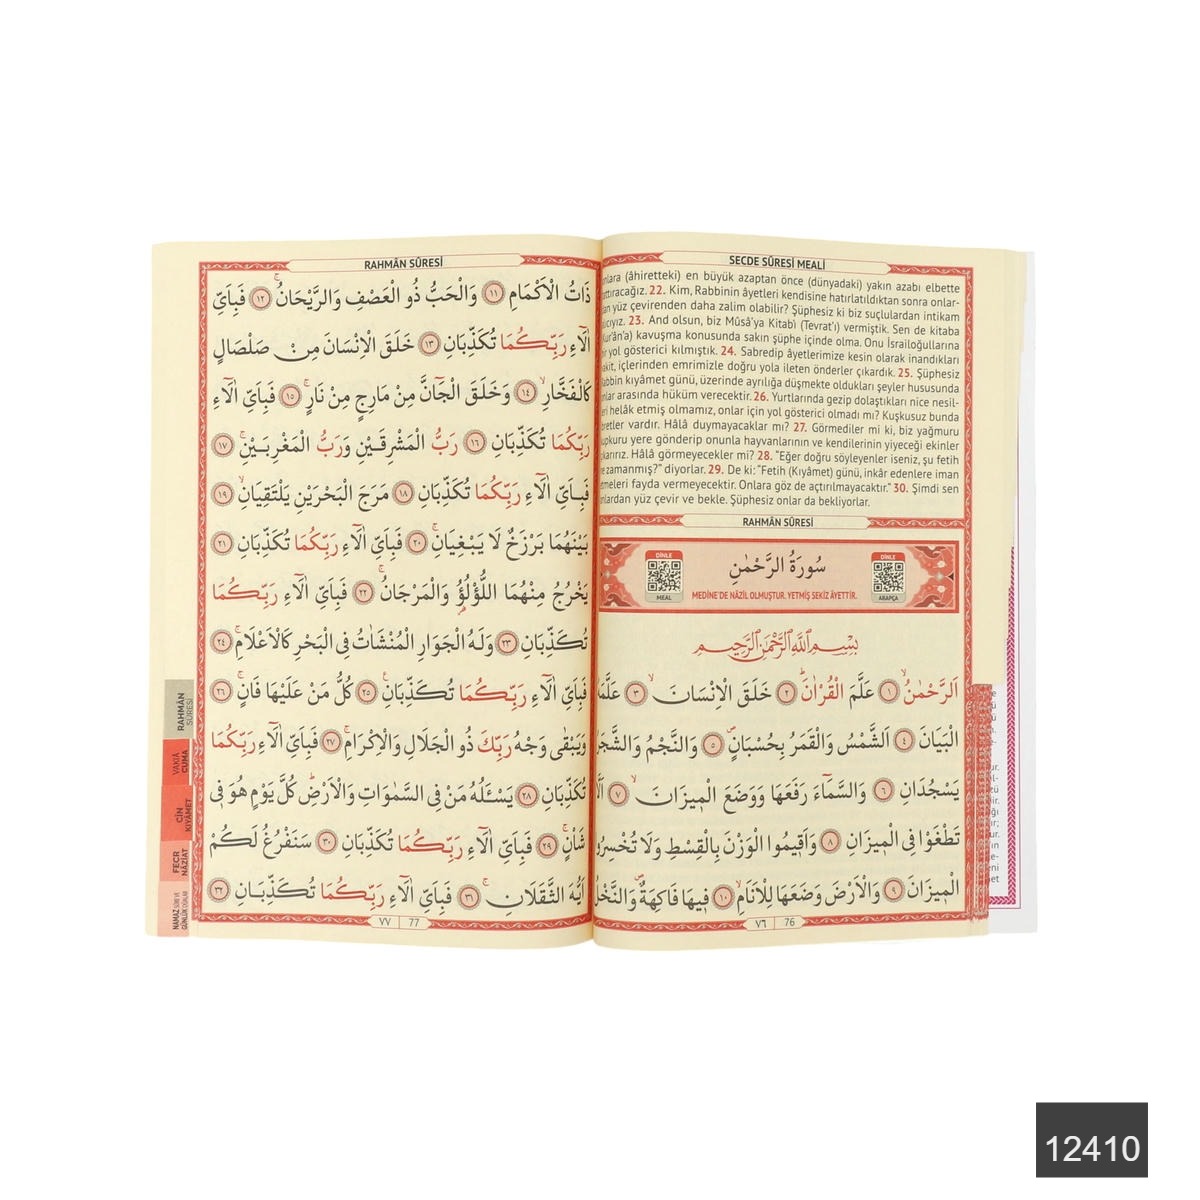 SECDE SÛRESİ MEALİ
(âhiretteki) en büyük azaptan önce (dünyadaki) yakın azabı elbette
22. Kim, Rabbinin âyetleri kendisine hatırlatıldıktan sonra onlar-
yüz çevirenden daha zalim olabilir? Şüphesiz ki biz suçlulardan intikam
23. And olsun, biz Mûsâ'ya Kitab'ı (Tevrat'ı) vermiştik. Sen de kitaba
(Kur'ân'a) kavuşma konusunda sakın şüphe içinde olma. Onu İsrailoğullarına
yol gösterici kılmıştık. 24. Sabredip âyetlerimize kesin olarak inandıkları
içlerinden emrimizle doğru yola ileten önderler çıkardık. 25. Şüphesiz
kıyâmet günü, üzerinde ayrılığa düşmekte oldukları şeyler hususunda
arasında hüküm verecektir. 26. Yurtlarında gezip dolaştıkları nice nesil-
helâk etmiş olmamız, onlar için yol gösterici olmadı mı? Kuşkusuz bunda
vardır. Hâlâ duymayacaklar mı? 27. Görmediler mi ki, biz yağmuru
kupkuru yere gönderip onunla hayvanlarının ve kendilerinin yiyeceği ekinler
Hâlâ görmeyecekler mi? 28. "Eğer doğru söyleyenler iseniz, şu fetih
ne zamanmış?" diyorlar. 29. De ki: "Fetih (Kıyâmet) günü, inkâr edenlere iman
etmeleri fayda vermeyecektir. Onlara göz de açtırılmayacaktır." 30. Şimdi sen
onlardan yüz çevir ve bekle. Şüphesiz onlar da bekliyorlar.
RAHMÂN SÛRESİ
DİNLE
MEAL
سُورَةُ الرَّحْمٰنِ
MEDİNE'DE NÂZİL OLMUŞTUR. YETMİŞ SEKİZ ÂYETTİR.
DİNLE
ARAPÇA
بِسْمِ اللّٰهِ الرَّحْمٰنِ الرَّحِيمِ
اَلرَّحْمٰنُۙ ١ عَلَّمَ الْقُرْاٰنَۜ ٢ خَلَقَ الْاِنْسَانَۙ ٣ عَلَّمَهُ
الْبَيَانَ ٤ اَلشَّمْسُ وَالْقَمَرُ بِحُسْبَانٍۖ ٥ وَالنَّجْمُ وَالشَّجَرُ
يَسْجُدَانِ ٦ وَالسَّمَٓاءَ رَفَعَهَا وَوَضَعَ الْم۪يزَانَۙ ٧ اَلَّا
تَطْغَوْا فِي الْم۪يزَانِ ٨ وَاَق۪يمُوا الْوَزْنَ بِالْقِسْطِ وَلَا تُخْسِرُوا
الْم۪يزَانَ ٩ وَالْاَرْضَ وَضَعَهَا لِلْاَنَامِۙ ١٠ ف۪يهَا فَاكِهَةٌۖ وَالنَّخْلُ
٧٦ 76
RAHMÂN SÛRESİ
ذَاتُ الْاَكْمَامِ ١١ وَالْحَبُّ ذُو الْعَصْفِ وَالرَّيْحَانُۚ ١٢ فَبِاَيِّ
اٰلَٓاءِ رَبِّكُمَا تُكَذِّبَانِ ١٣ خَلَقَ الْاِنْسَانَ مِنْ صَلْصَالٍ
كَالْفَخَّارِۙ ١٤ وَخَلَقَ الْجَٓانَّ مِنْ مَارِجٍ مِنْ نَارٍۚ ١٥ فَبِاَيِّ اٰلَٓاءِ
رَبِّكُمَا تُكَذِّبَانِ ١٦ رَبُّ الْمَشْرِقَيْنِ وَرَبُّ الْمَغْرِبَيْنِۚ ١٧
فَبِاَيِّ اٰلَٓاءِ رَبِّكُمَا تُكَذِّبَانِ ١٨ مَرَجَ الْبَحْرَيْنِ يَلْتَقِيَانِۙ ١٩
بَيْنَهُمَا بَرْزَخٌ لَا يَبْغِيَانِۚ ٢٠ فَبِاَيِّ اٰلَٓاءِ رَبِّكُمَا تُكَذِّبَانِ ٢١
يَخْرُجُ مِنْهُمَا اللُّؤْلُؤُ وَالْمَرْجَانُۚ ٢٢ فَبِاَيِّ اٰلَٓاءِ رَبِّكُمَا
تُكَذِّبَانِ ٢٣ وَلَهُ الْجَوَارِ الْمُنْشَاٰتُ فِي الْبَحْرِ كَالْاَعْلَامِۚ ٢٤
فَبِاَيِّ اٰلَٓاءِ رَبِّكُمَا تُكَذِّبَانِ۟ ٢٥ كُلُّ مَنْ عَلَيْهَا فَانٍۚ ٢٦
وَيَبْقٰى وَجْهُ رَبِّكَ ذُو الْجَلَالِ وَالْاِكْرَامِۚ ٢٧ فَبِاَيِّ اٰلَٓاءِ رَبِّكُمَا
تُكَذِّبَانِ ٢٨ يَسْـَٔلُهُ مَنْ فِي السَّمٰوَاتِ وَالْاَرْضِۜ كُلَّ يَوْمٍ هُوَ ف۪ي
شَأْنٍۚ ٢٩ فَبِاَيِّ اٰلَٓاءِ رَبِّكُمَا تُكَذِّبَانِ ٣٠ سَنَفْرُغُ لَكُمْ
اَيُّهَ الثَّقَلَانِۚ ٣١ فَبِاَيِّ اٰلَٓاءِ رَبِّكُمَا تُكَذِّبَانِ ٣٢
٧٧ 77
RAHMÂN SÛRESİ
VAKIA CUMA
CİN KIYÂMET
FECR NÂZİAT
NAMAZ SÛRE VE GÜNLÜK DUALAR
12410